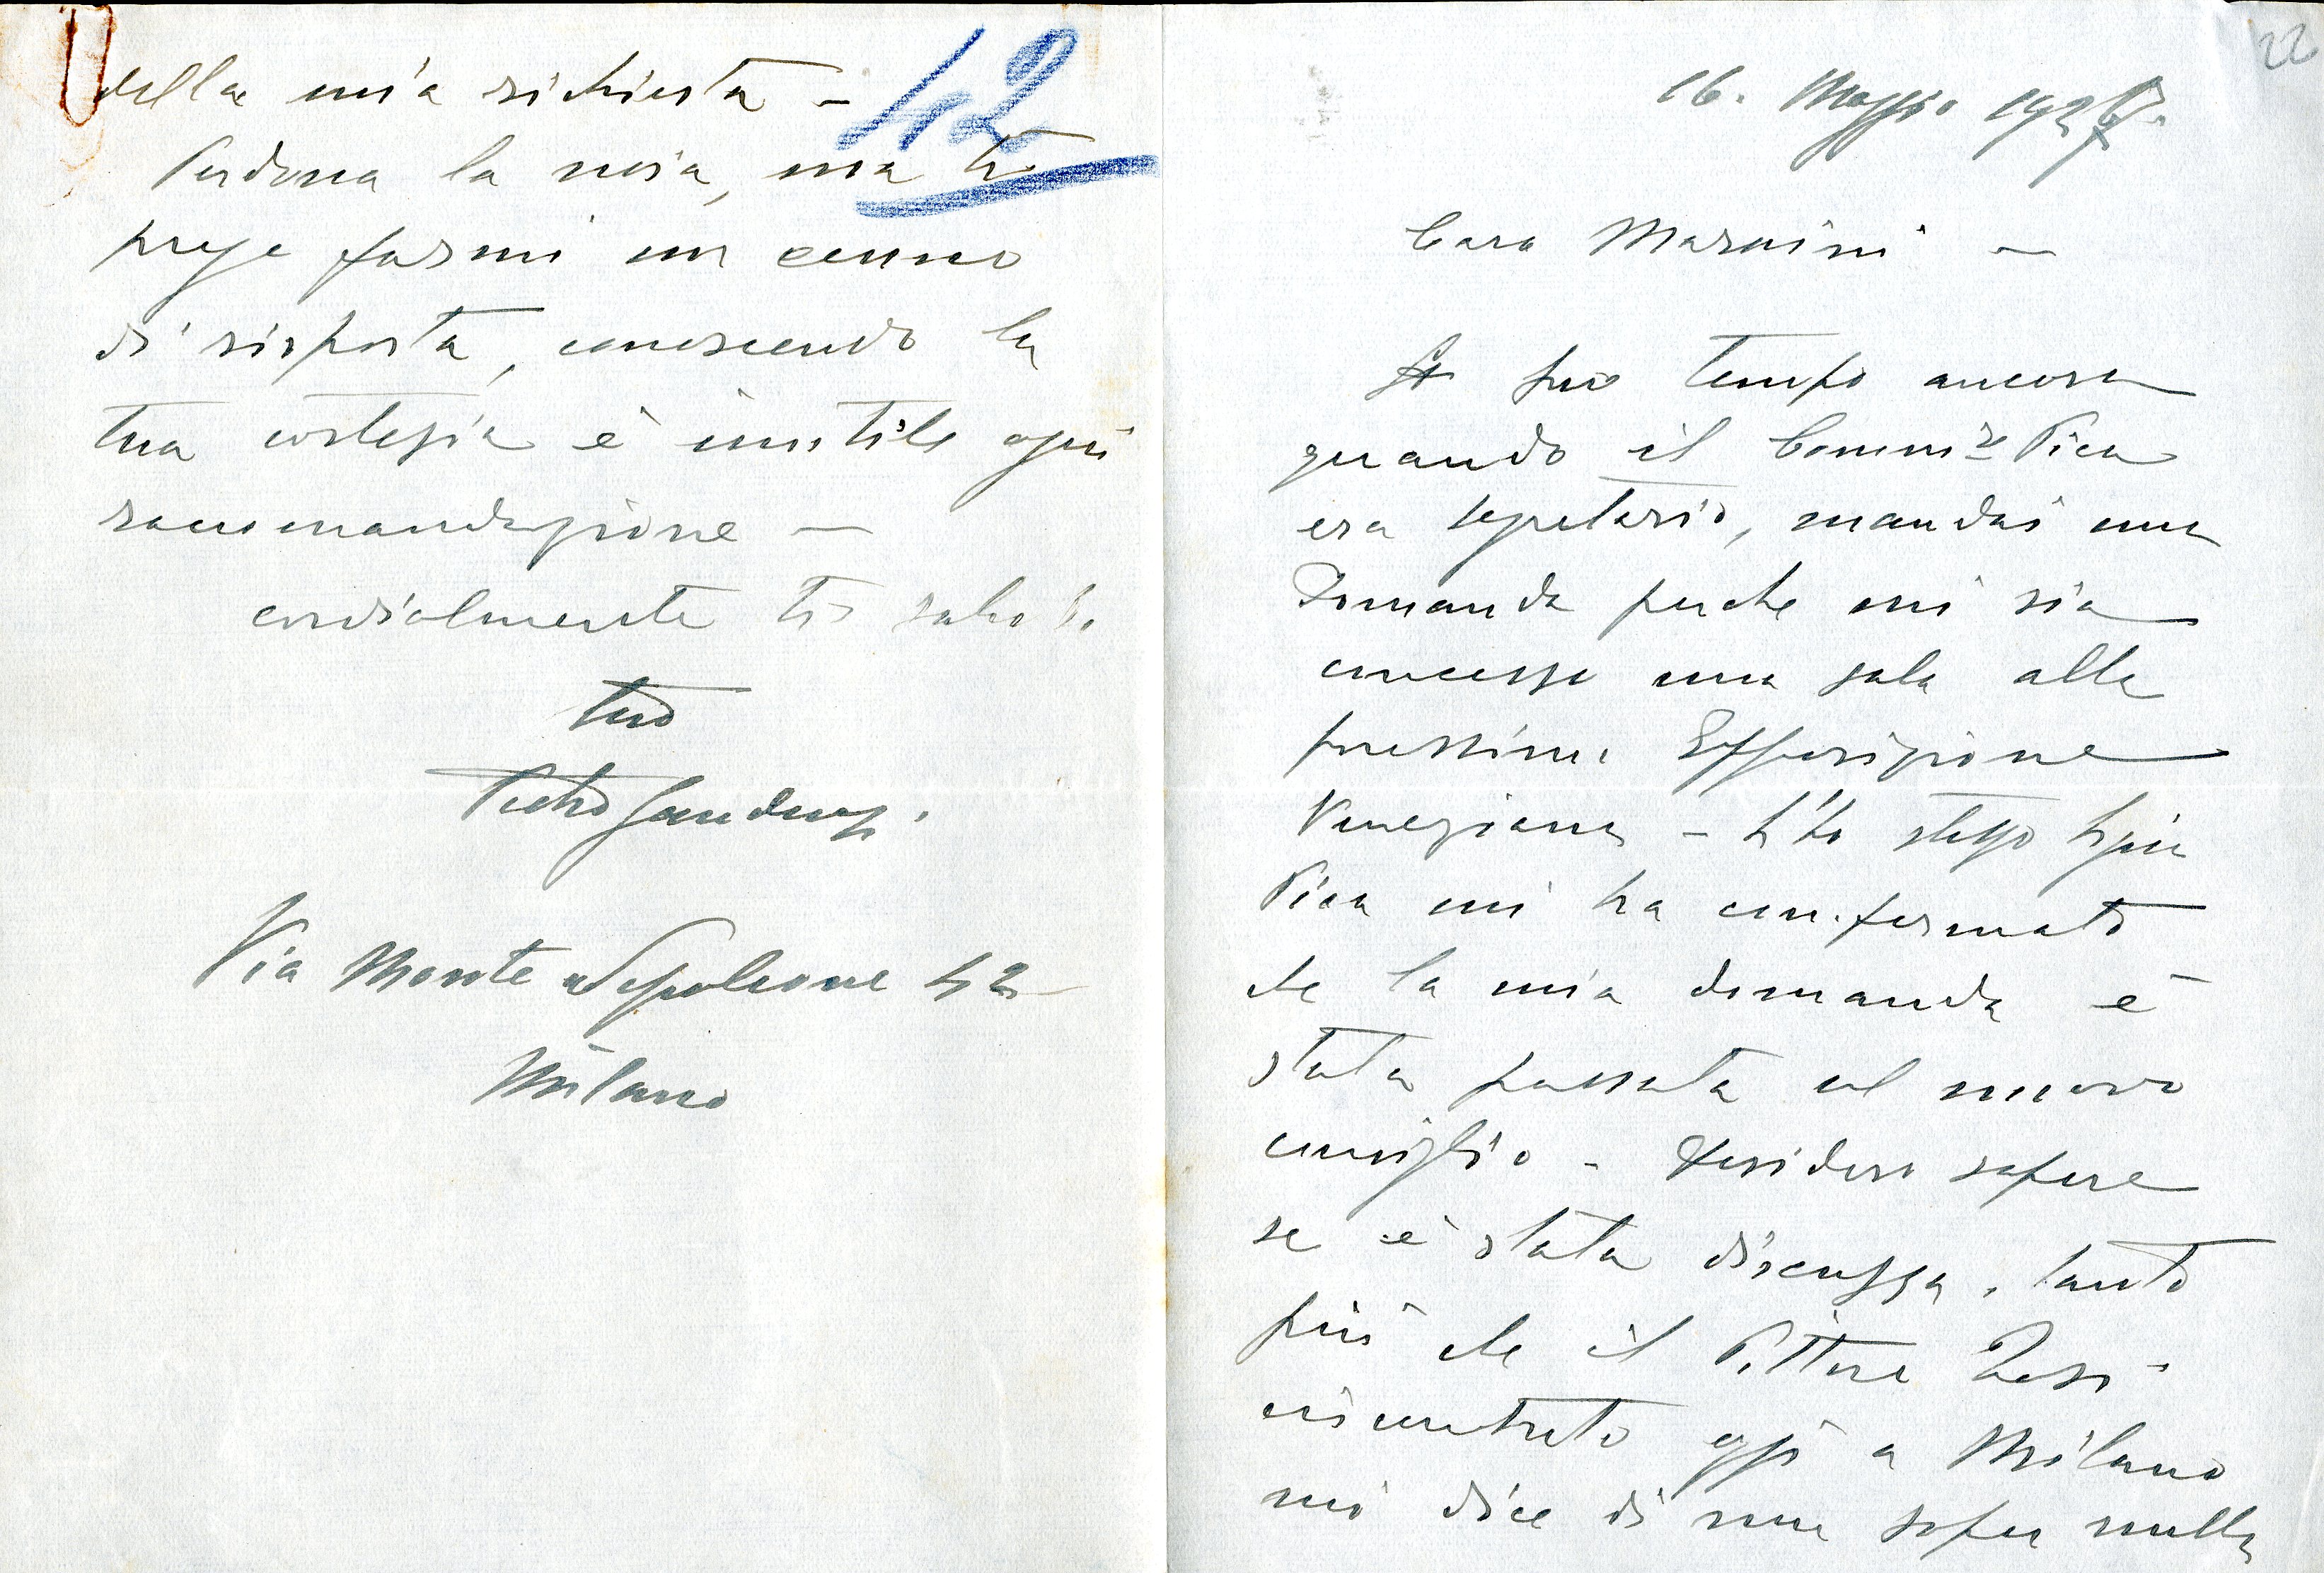 22
16. Maggio 1927.
Caro Maraini –
A suo tempo ancora
quando il Comm.re Pica
era segretario, mandai una
domanda perche mi sia
concessa una sala alla
prossima Esposizione
Veneziana – lo stesso
Pica mi ha confermato
che la mia domanda è
stata passata al nuovo
consiglio – desidero sapere
se è stata discussa, tanto
più che il Pittore
incontrato oggi a Milano
mi dice di non saper nulla
42
della mia richiesta –
Perdona la noia, ma ti
prego farmi un cenno
di risposta, conoscendo la
tua cortesia è inutile ogni
raccomandazione –
cordialmente ti saluto
tuo
Pietro Gaudenzi
Via Monte Napoleone 42
Milano